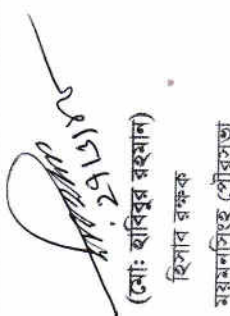 (মো: হাবিবুর রহমান)
হিসাব রক্ষক
ময়মনসিংহ পৌরসভা